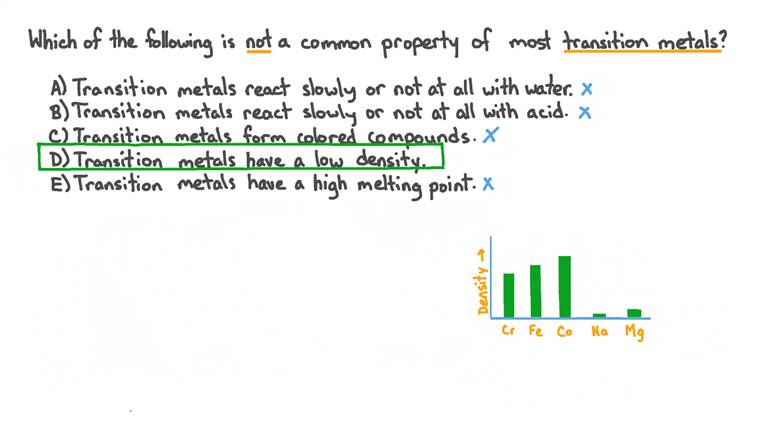 Which of the following is not a common property of most transition metals?
A) Transition metals react slowly or not at all with water. x
B) Transition metals react slowly or not at all with acid. x
C) Transition metals form colored compounds. x
D) Transition metals have a low density.
E) Transition metals have a high melting point. x
Density →
Cr Fe Co Na Mg